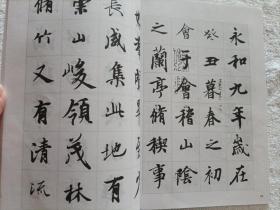 永和九年歲在
癸丑暮春之初
會于會稽山陰
之蘭亭脩禊事
長咸集此地有
崇山峻領茂林
脩竹又有清流